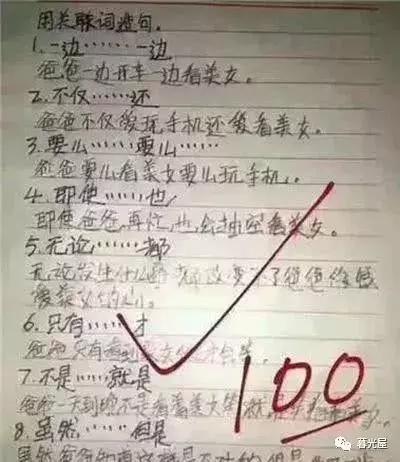 用关联词造句.
1.一边……一边
爸爸一边开车一边看美女。
2.不仅……还
爸爸不仅爱玩手机还爱看美女。
3.要么……要么……
爸爸要么看美女要么玩手机。
4.即使……也
即使爸爸再忙,也会抽空看美女。
5.无论……都
无论发生什么都改变不了爸爸
爱美女的心。
6.只有……才
爸爸只有看到美女才会笑。
7.不是……就是
爸爸一天到晚不是看着美女笑就是
8.虽然……但是
100
暮光屋